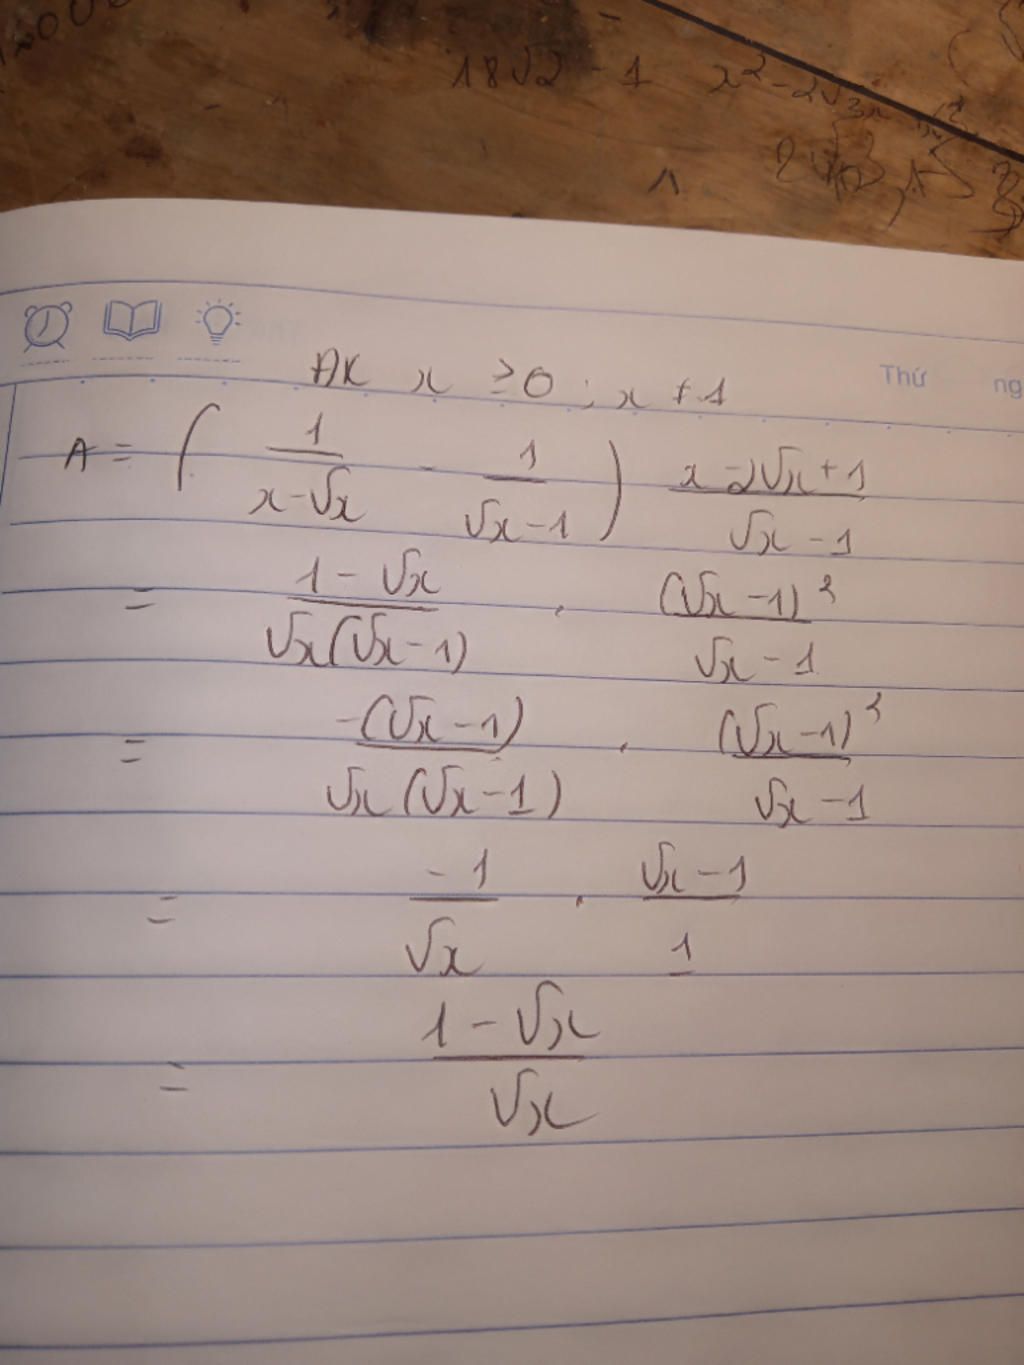 18√2 - 1 x² - 2√3x
Thứ ng
ĐK x ≥ 0 ; x ≠ 1
A = ( 1/(x-√x) - 1/(√x-1) ) (x-2√x+1)/(√x-1)
= (1-√x)/(√x(√x-1)) . (√x-1)²/(√x-1)
= -(√x-1)/(√x(√x-1)) . (√x-1)²/(√x-1)
= -1/√x . (√x-1)/1
= (1-√x)/√x